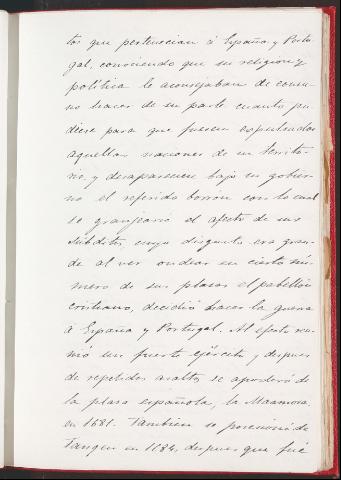 tos que pertenecian á España y Portu-
gal, conociendo que su religion y
política le aconsejaban de consu-
no hacer de su parte cuanto pu-
diese para que fuesen espulsadas
aquellas naciones de su territo-
rio, y desapareciese bajo su gobier-
no el referido borron con lo cual
se granjearia el afecto de sus
súbditos, cuyo disgusto era gran-
de al ver ondear en cierto nú-
mero de sus plazas el pabellon
cristiano, decidió hacer la guerra
á España y Portugal. Al efecto reu-
nió un fuerte ejército y despues
de repetidos asaltos se apoderó de
la plaza española, la Maamora,
en 1681. Tambien se posesionó de
Tanger en 1684, despues que fué